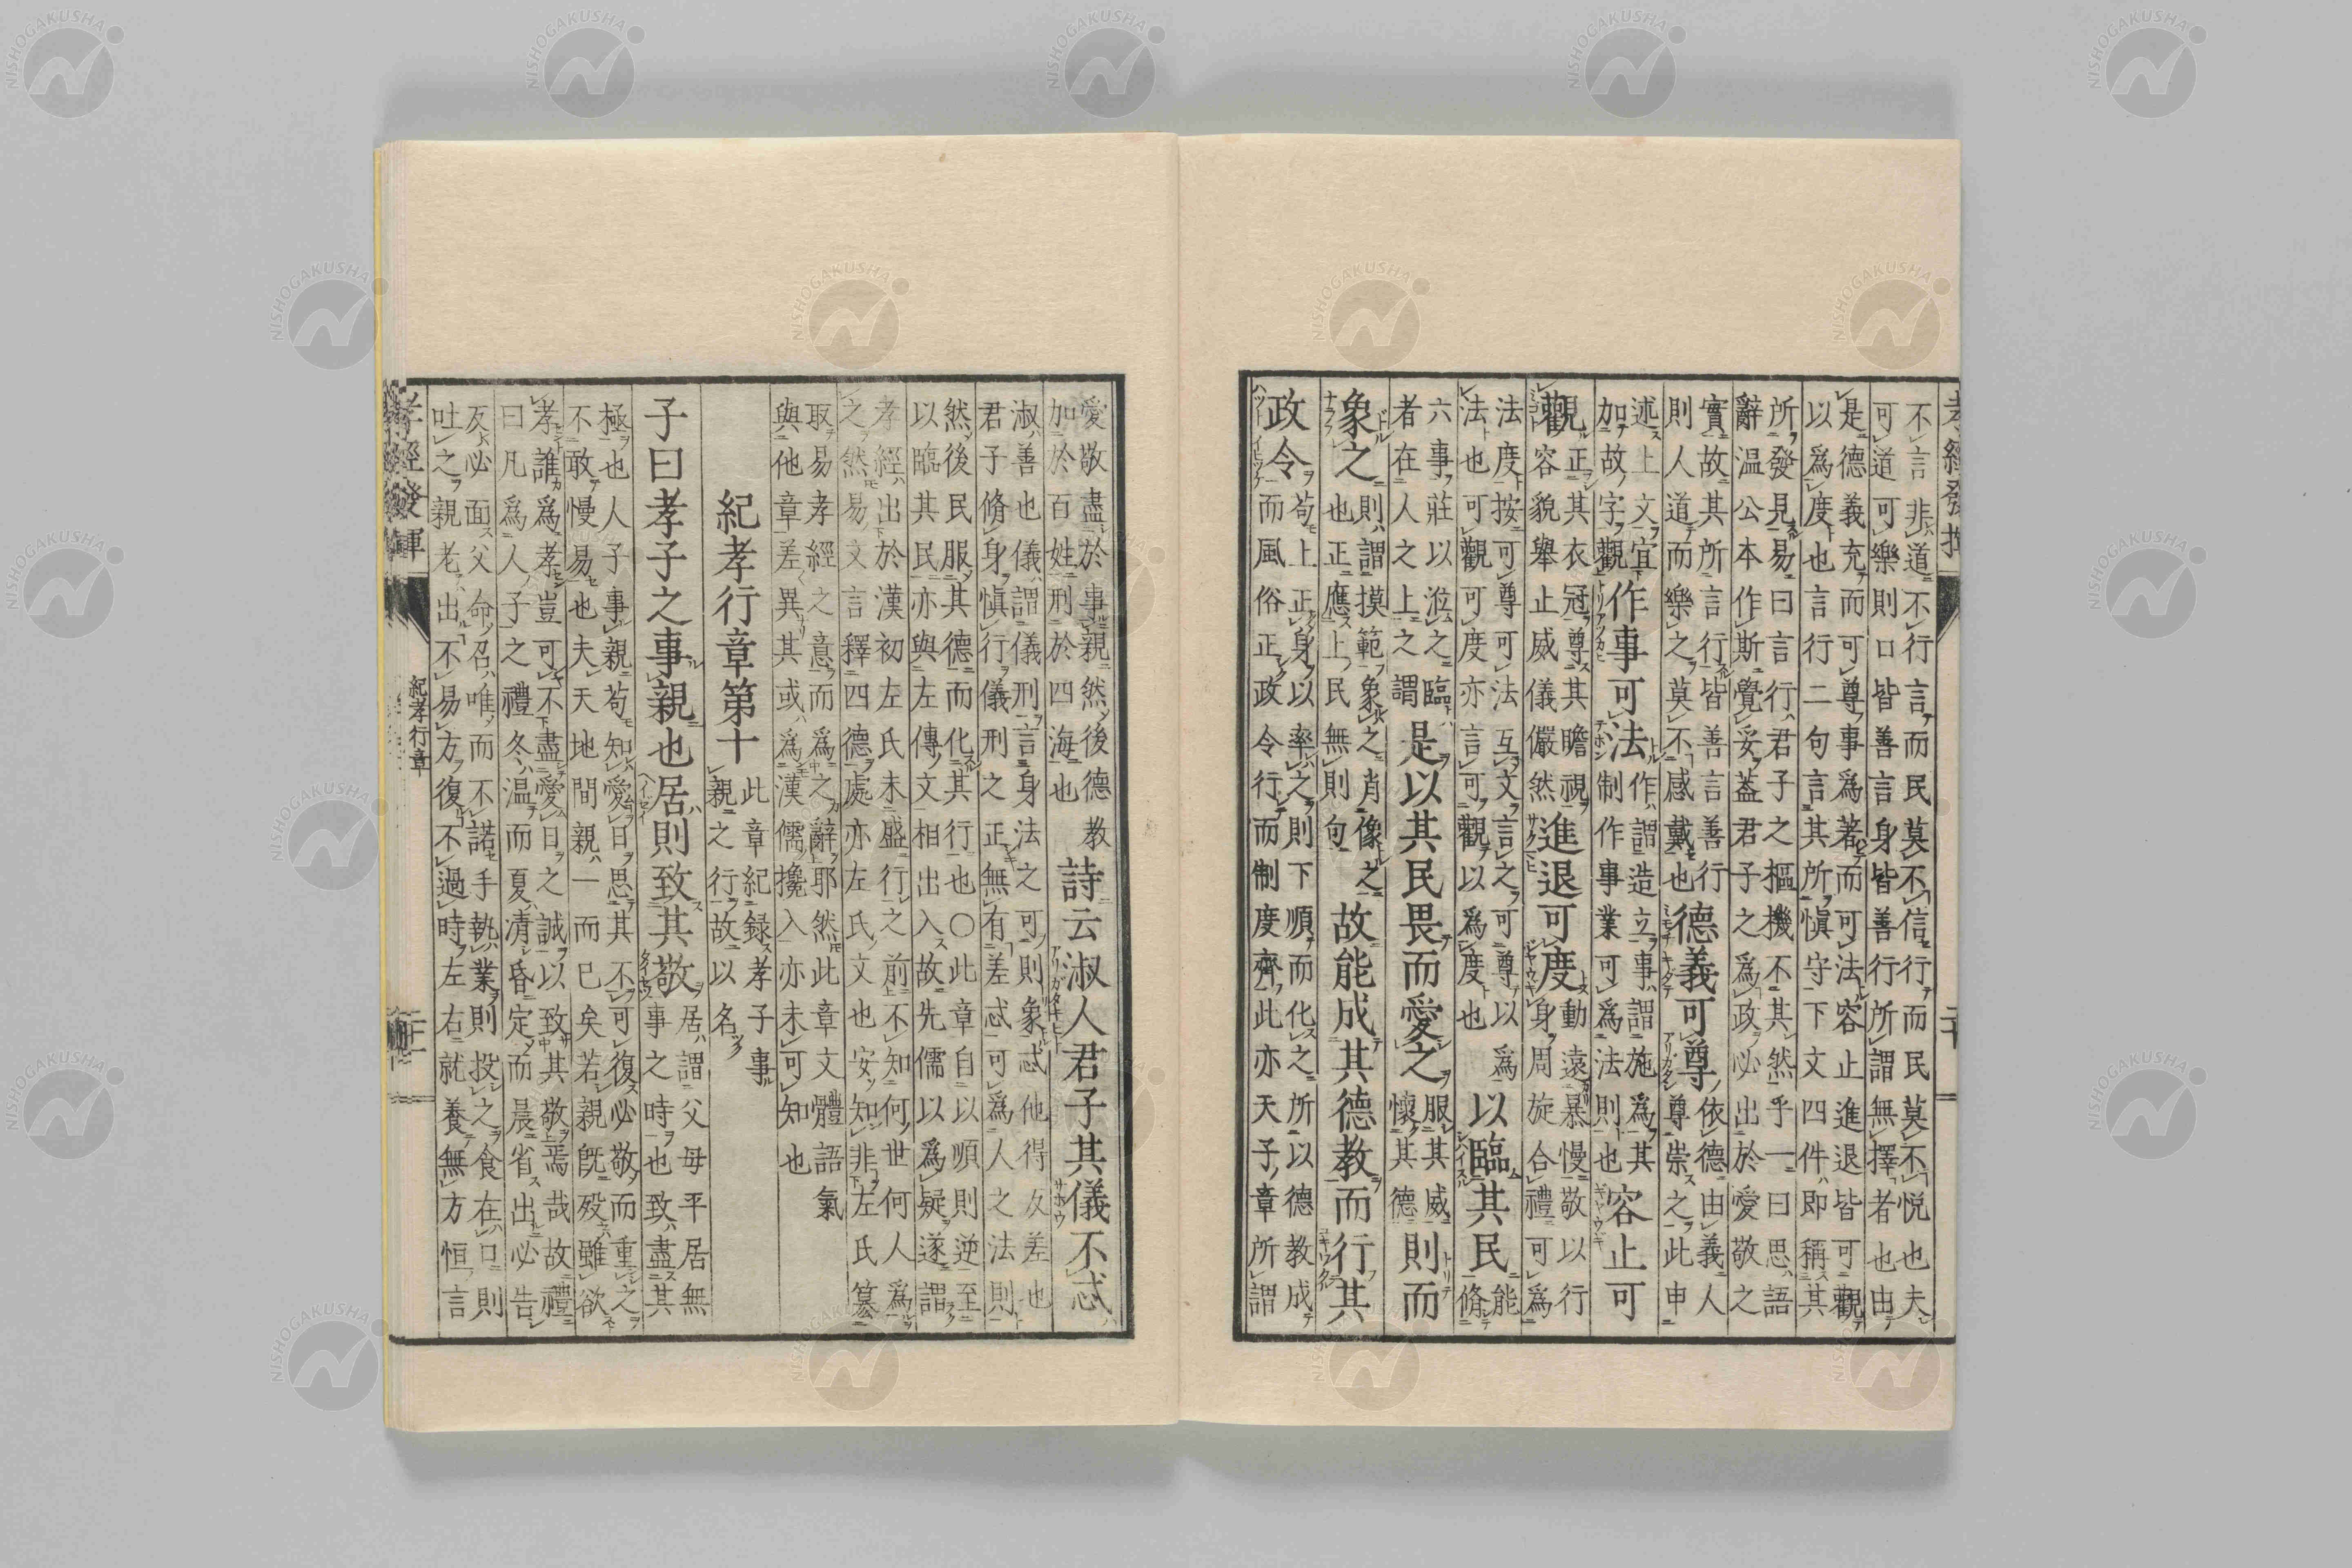 不言非道不行言而民莫不信行而民莫不悦也夫
可道可樂則口皆善言身皆善行所謂無擇者也由
是德義充而可尊事爲著而可法容止進退皆可觀
以爲度也言行二句言其所愼守下文四件即稱其
所發見易曰言行君子之樞機不其然乎一曰思語
辭温公本作斯覺妥葢君子之爲政必出於愛敬之
實故其所言行皆善言善行
則人道而樂之莫不感戴也
德義可尊
依德由義人
尊崇之此申
述上文宜下
加故字觀
作事可法
作謂造立事謂施爲其
制作事業可爲法則也
容止可
觀
正其衣冠尊其瞻視
容貌舉止威儀儼然
進退可度
動遠暴慢敬以行
身周旋合禮可爲
法度按可尊可法互文言之可尊以爲
法也可觀可度亦言可觀以爲度也
以臨其民
能脩
六事莊以涖之臨
者在人之上之謂
是以其民畏而愛之
服其威
懷其德
則而
象之
則謂摸範象之肖像之
也正應上民無則句
故能成其德教而行其
政令
苟上正身以率之則下順而化之所以德教成
而風俗正政令行而制度齊此亦天子章所謂
愛敬盡於事親然後德教
加於百姓刑於四海也
詩云淑人君子其儀不忒
淑善也儀謂儀刑言身法之可則象忒他得反差也
君子脩身愼行儀刑之正無有差忒可爲人之法則
然後民服其德而化其行也〇此章自以順則逆至
以臨其民亦與左傳文相出入故先儒以爲疑遂謂
孝經出於漢初左氏未盛行之前不知何世何人爲
之然易文言釋四德處亦左氏文也安知非左氏纂
取易孝經之意而爲之辭耶然此章文體語氣
與他章差異其或爲漢儒攙入亦未可知也
紀孝行章第十
此章紀録孝子事
親之行故以名
子曰孝子之事親也居則致其敬
居謂父母平居無
事之時也致盡其
極也人子事親苟知愛日思其不可復必敬而重之
不敢慢易也夫天地間親一而已矣若親旣殁雖欲
孝誰爲孝豈可不盡愛日之誠以致其敬焉哉故禮
曰凡爲人子之禮冬温而夏凊昏定而晨省出必告
反必面父命召唯而不諾手執業則投之食在口則
吐之親老出不易方復不過時左右就養無方恒言
孝經發揮
紀孝行章